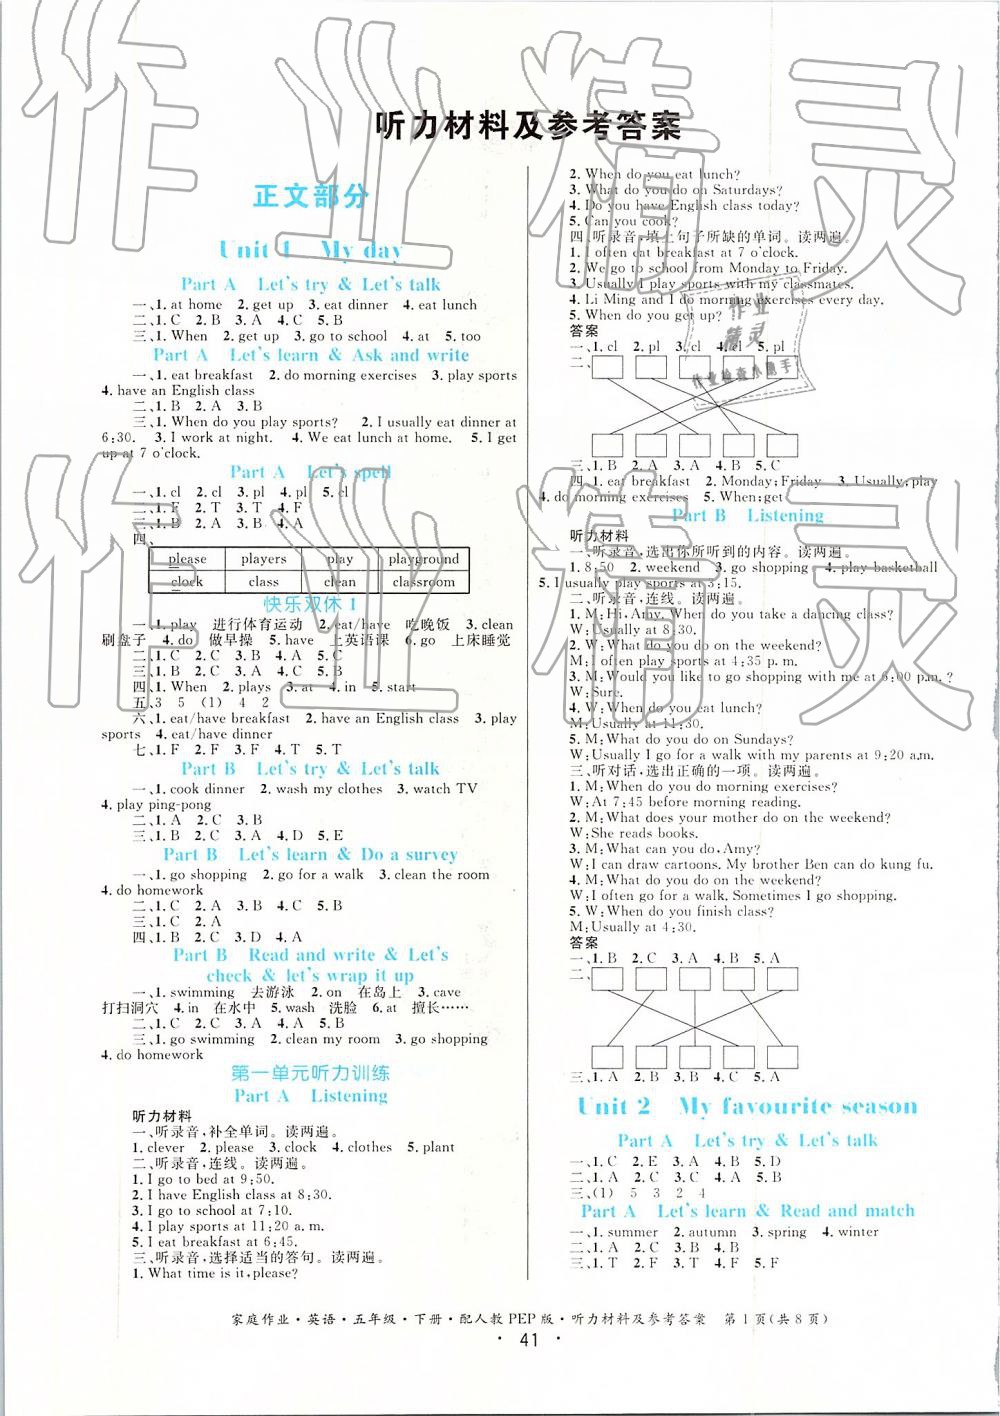 听力材料及参考答案
正文部分
Unit 1 My day
Part A Let's try & Let's talk
一、1. at home 2. get up 3. eat dinner 4. eat lunch
二、1. C 2. B 3. A 4. C 5. B
三、1. When 2. get up 3. go to school 4. at 5. too
Part A Let's learn & Ask and write
一、1. eat breakfast 2. do morning exercises 3. play sports
4. have an English class
二、1. B 2. A 3. B
三、1. When do you play sports? 2. I usually eat dinner at
6:30. 3. I work at night. 4. We eat lunch at home. 5. I get
up at 7 o'clock.
Part A Let's spell
一、1. cl 2. cl 3. pl 4. pl 5. cl
二、1. F 2. T 3. T 4. F
三、1. B 2. A 3. B 4. A
四、
please players play playground
clock class clean classroom
快乐双休 1
一、1. play 进行体育运动 2. eat/have 吃晚饭 3. clean
刷盘子 4. do 做早操 5. have 上英语课 6. go 上床睡觉
二、1. C 2. C 3. B 4. A 5. C
三、1. B 2. C 3. A 4. C 5. A
四、1. When 2. plays 3. at 4. in 5. start
五、3 5 (1) 4 2
六、1. eat/have breakfast 2. have an English class 3. play
sports 4. eat/have dinner
七、1. F 2. F 3. F 4. T 5. T
Part B Let's try & Let's talk
一、1. cook dinner 2. wash my clothes 3. watch TV
4. play ping-pong
二、1. A 2. C 3. B
三、1. B 2. C 3. A 4. D 5. E
Part B Let's learn & Do a survey
一、1. go shopping 2. go for a walk 3. clean the room
4. do homework
二、1. C 2. A 3. B 4. C 5. C
三、1. C 2. A
四、1. B 2. C 3. D 4. A
Part B Read and write & Let's
check & let's wrap it up
一、1. swimming 去游泳 2. on 在岛上 3. cave
打扫洞穴 4. in 在水中 5. wash 洗脸 6. at 擅长……
二、1. C 2. C 3. A 4. A 5. B
三、1. go swimming 2. clean my room 3. go shopping
4. do homework
第一单元听力训练
Part A Listening
听力材料
一、听录音,补全单词。读两遍。
1. clever 2. please 3. clock 4. clothes 5. plant
二、听录音,连线。读两遍。
1. I go to bed at 9:50.
2. I have English class at 8:30.
3. I go to school at 7:10.
4. I play sports at 11:20 a. m.
5. I eat breakfast at 6:45.
三、听录音,选择适当的答句。读两遍。
1. What time is it, please?
2. When do you eat lunch?
3. What do you do on Saturdays?
4. Do you have English class today?
5. Can you cook?
四、听录音,填上句子所缺的单词。读两遍。
1. I often eat breakfast at 7 o'clock.
2. We go to school from Monday to Friday.
3. Usually I play sports with my classmates.
4. Li Ming and I do morning exercises every day.
5. When do you get up?
答案
一、1. cl 2. pl 3. pl 4. cl 5. pl
二、
三、1. B 2. A 3. A 4. B 5. C
四、1. eat breakfast 2. Monday; Friday 3. Usually; play
4. do morning exercises 5. When; get
Part B Listening
听力材料
一、听录音,选出你所听到的内容。读两遍。
1. 8:50 2. weekend 3. go shopping 4. play basketball
5. I usually play sports at 3:15.
二、听录音,连线。读两遍。
1. M: Hi, Amy. When do you take a dancing class?
W: Usually at 8:30.
2. W: What do you do on the weekend?
M: I often play sports at 4:35 p. m.
3. M: Would you like to go shopping with me at 6:00 p.m. ?
W: Sure.
4. W: When do you eat lunch?
M: Usually at 11:30.
5. M: What do you do on Sundays?
W: Usually I go for a walk with my parents at 9:20 a.m.
三、听对话,选出正确的一项。读两遍。
1. M: When do you do morning exercises?
W: At 7:45 before morning reading.
2. M: What does your mother do on the weekend?
W: She reads books.
3. M: What can you do, Amy?
W: I can draw cartoons. My brother Ben can do kung fu.
4. M: What do you do on the weekend?
W: I often go for a walk. Sometimes I go shopping.
5. W: When do you finish class?
M: Usually at 4:30.
答案
一、1. B 2. C 3. A 4. B 5. A
二、
三、1. A 2. B 3. B 4. B 5. A
Unit 2 My favourite season
Part A Let's try & Let's talk
一、1. C 2. E 3. A 4. B 5. D
二、1. A 2. C 3. C 4. B 5. A
三、(1) 5 3 2 4
Part A Let's learn & Read and match
一、1. summer 2. autumn 3. spring 4. winter
二、1. A 2. C 3. B 4. B
三、1. T 2. F 3. F 4. T 5. F
家庭作业·英语·五年级·下册·配人教 PEP 版·听力材料及参考答案 第 1 页(共 8 页)
· 41 ·
作业精灵
作业精灵
作业
精灵
作业检查小助手